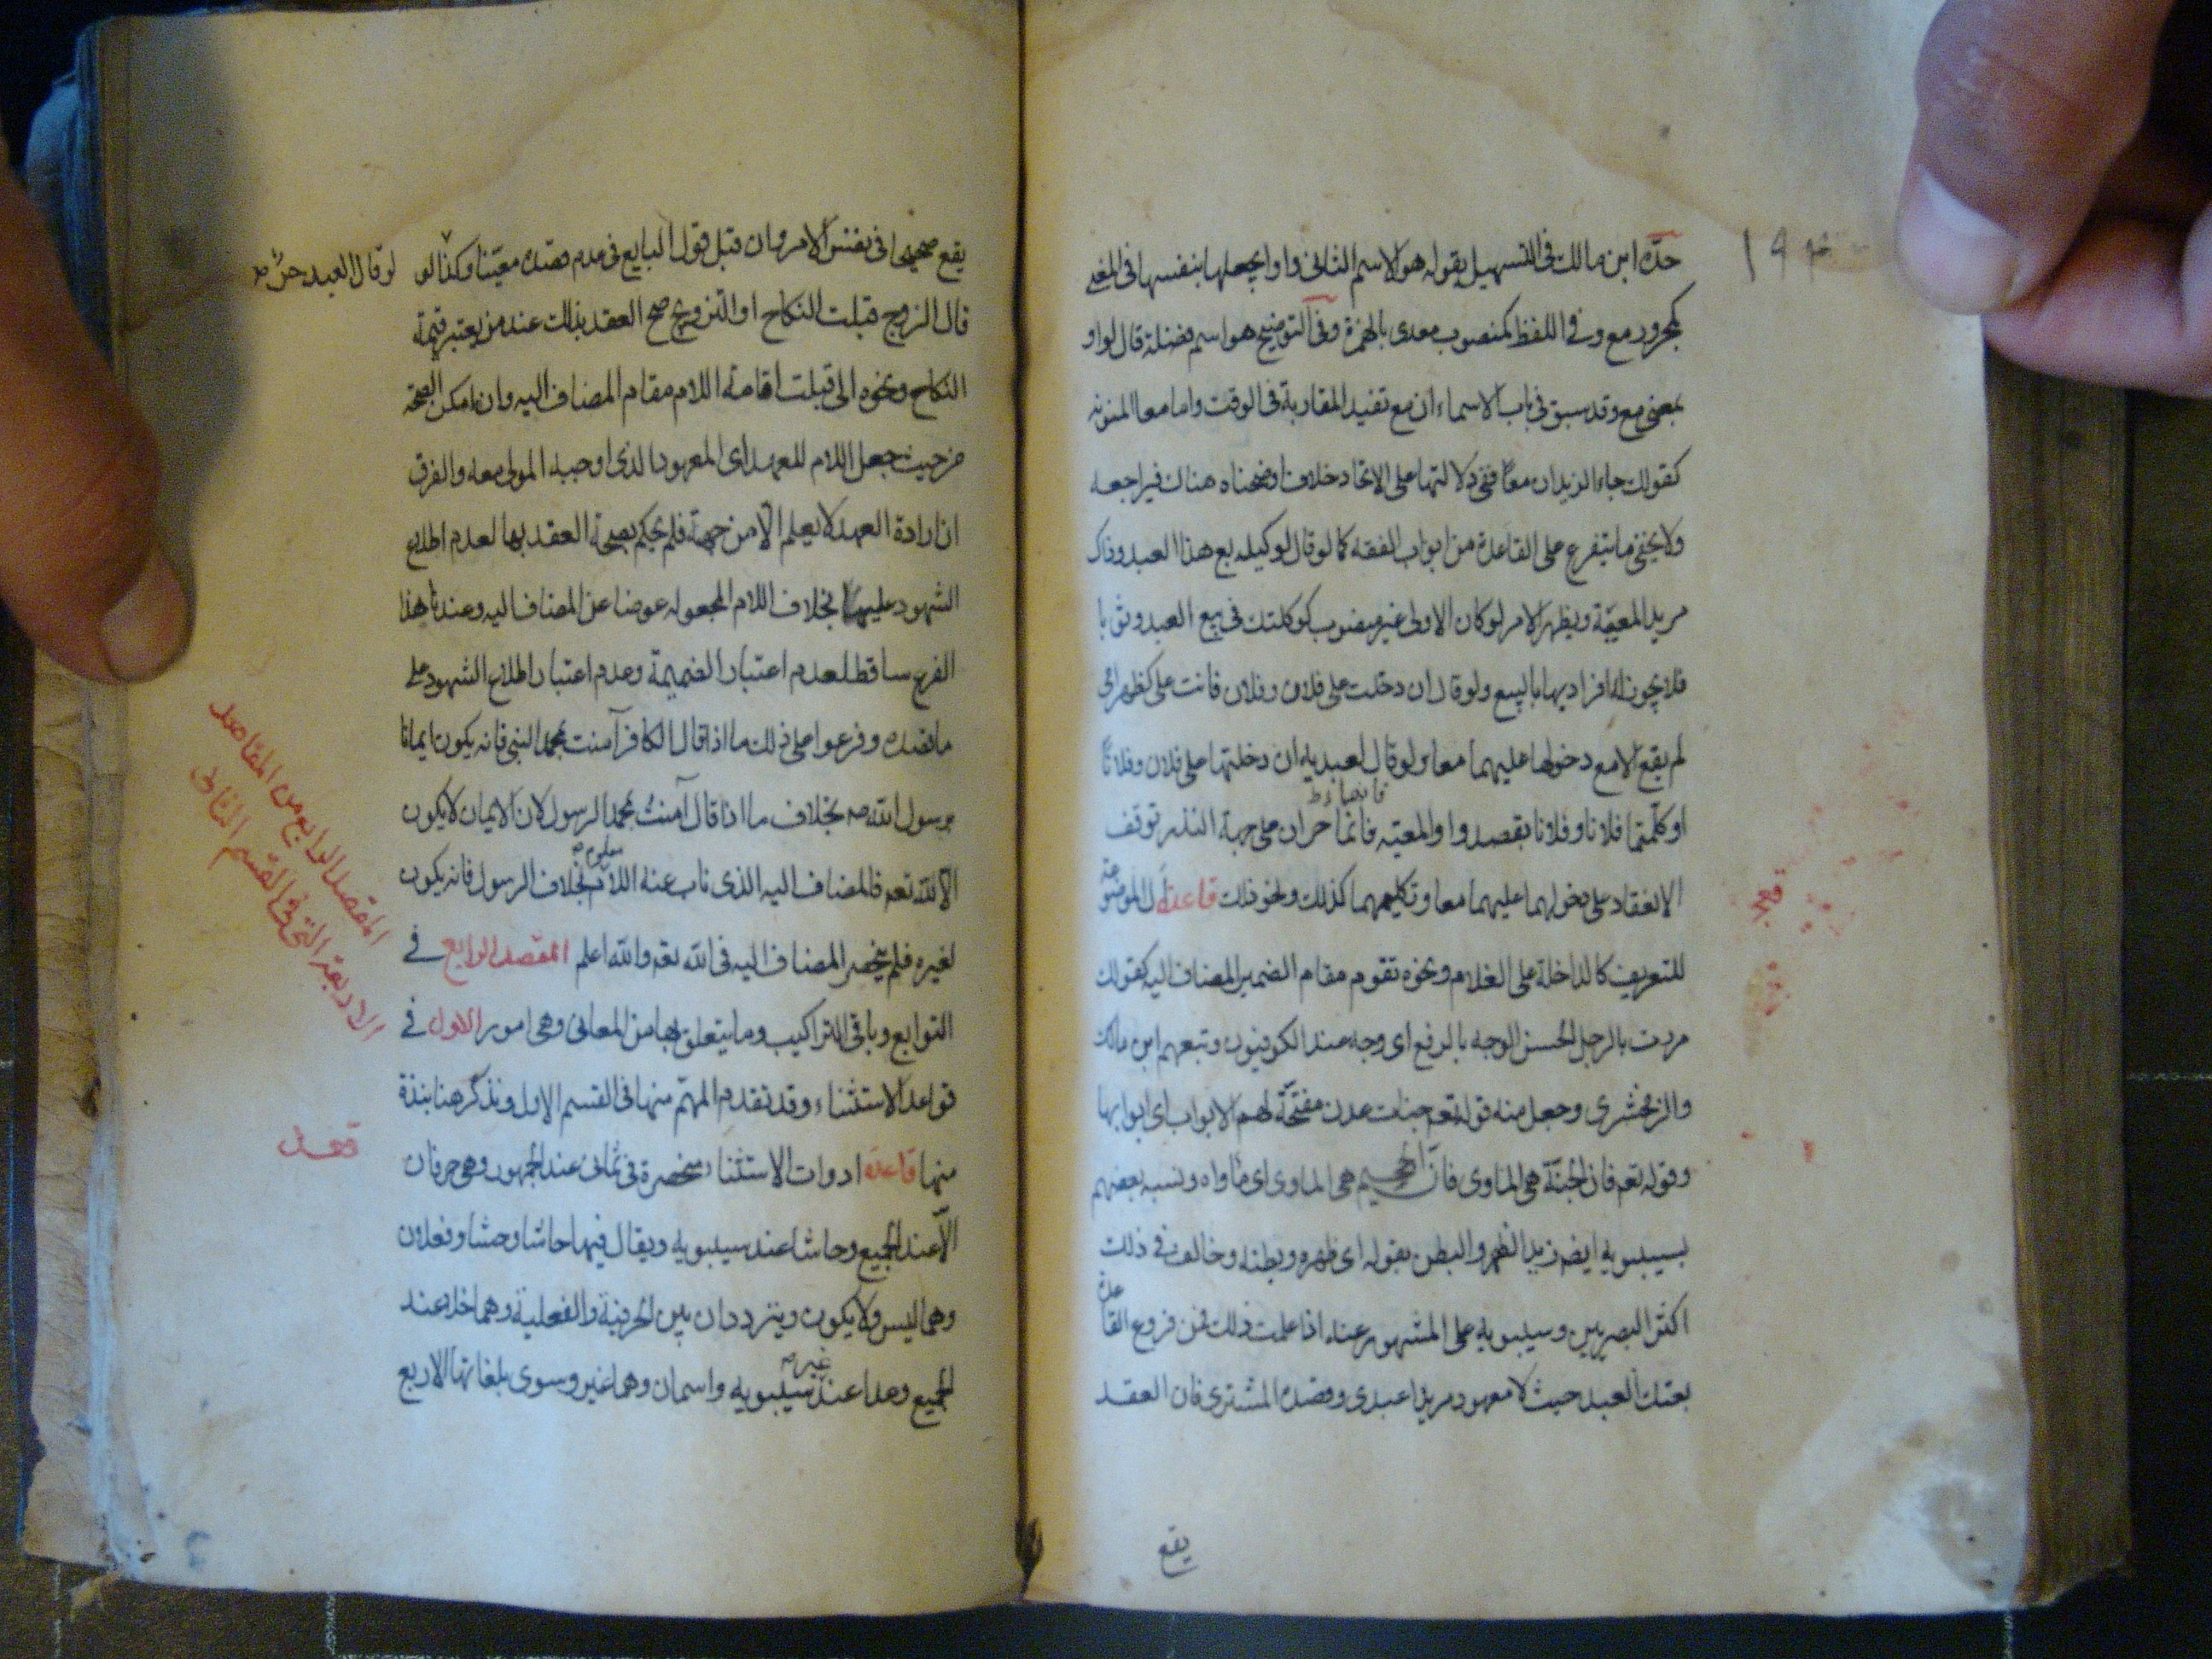 حده ابن مالك في التسهيل بقوله هو الاسم الثاني واوا يجعلها بنفسها في المعنى
كمجرور مع وفي اللفظ كمنصوب معدى بالهمزة وفي التوضيح هو اسم فضلة قال لواو
بمعنى مع وقد سبق في باب الاسماء ان مع تفيد المقاربة في الوقت واما معا المنونه
كقولك جاء الزيدان معاً ففي دلالتها على الاتحاد خلاف اوضحناه هناك فيراجعه
ولا يخفى ما يتفرع على القاعدة من ابواب الفقه كما لو قال لوكيله بع هذا العبد وذاك
مريد المعيّة ويظهر الامر لو كان الاول غير منصوب كوكلتك في بيع العبد وثوبا
فلا يجوز له افراديها بالبيع ولو قال ان دخلت على فلان وفلان فانت علي كظهر امي
لم يقع الا مع دخولها عليهما معا ولو قال لعبديه ان دخلتما على فلان وفلاناً
او كلمتما فلانا وفلانا بقصد واو المعيه فانتما حران على جهة النذر توقف
الانعقاد على دخولهما عليهما معا وتكليمهما كذلك ونحو ذلك قاعدة ال الموضوعة
للتعريف كالداخلة على الغلام ونحوه تقوم مقام الضمير المضاف اليه كقولك
مررت بالرجل الحسن الوجه بالرفع اي وجهه عند الكوفيون وتبعهم ابن مالك
والزمخشري وجعل منه قوله تعم جنات عدن مفتحة لهم الابواب اى ابوابها
وقوله تعم فان الجنة هي الماوى فان الجحيم هي الماوى اى ماواه ونسبه بعضهم
بسيبويه ايضم زيد الظهر والبطن بقوله اى ظهره وبطنه وخالف في ذلك
اكثر البصريين وسيبويه على المشهور عنه اذا علمت ذلك فمن فروع القاعدة
بعتك العبد حيث لا معهود مريدا عبدي وقصده المشترى فان العقد
يقع
يقع صحيحا في نفس الامر وان قبل قول البايع في عدم قصده معيّنا وكذا لو
لو قال العبد حر صح
قال الزوج قبلت النكاح او التزويج صح العقد بذلك عند من يعتبر قيمة
النكاح ونحوه الى قبلت اقامة اللام مقام المضاف اليه وان امكن الصحة
من حيث جعل اللام للعهد اى المعهود الذي اوجبه المولى معه والفرق
ان ارادة العهد لا يعلم الّا من جهة فلم يحكم بصحة العقد بها لعدم اطلاع
الشهود عليها بخلاف اللام المجعوله عوضا عن المضاف اليه وعندنا هذا
الفرع ساقط لعدم اعتبار الضميمة وعدم اعتبار اطلاع الشهود على
ما قصده وفرعوا على ذلك ما اذا قال الكافر آمنت بمحمد النبي فانه يكون ايمانا
برسول الله ص بخلاف ما اذا قال آمنتُ بمحمد الرسول لان الايمان لا يكون
الا لله تعم فالمضاف اليه الذي ناب عنه اللام معلوم بخلاف الرسول فانه يكون
لغيره فلم ينحصر المضاف اليه في الله تعم والله اعلم المقصد الرابع في
التوابع وباقي التراكيب وما يتعلق بها من المعاني وهي امور الاول في
قواعد الاستثناء وقد تقدم المهمّ منها في القسم الاول ونذكر هنا نبذة
منها قاعدة ادوات الاستثنا منحصرة في ثماني عند الجمهور وهي حرفان
الّا عند الجميع وحاشا عند سيبويه ويقال فيها حاشا وحشا وفعلان
وهما ليس ولا يكون ويترددان بين الحرفية والفعلية وهما خلا عند
الجميع وعدا عند غير سيبويه واسمان وهما غير وسوى بلغاتها الاربع
المقصد الرابع من المقاصد
الاربعة التي في القسم الثاني